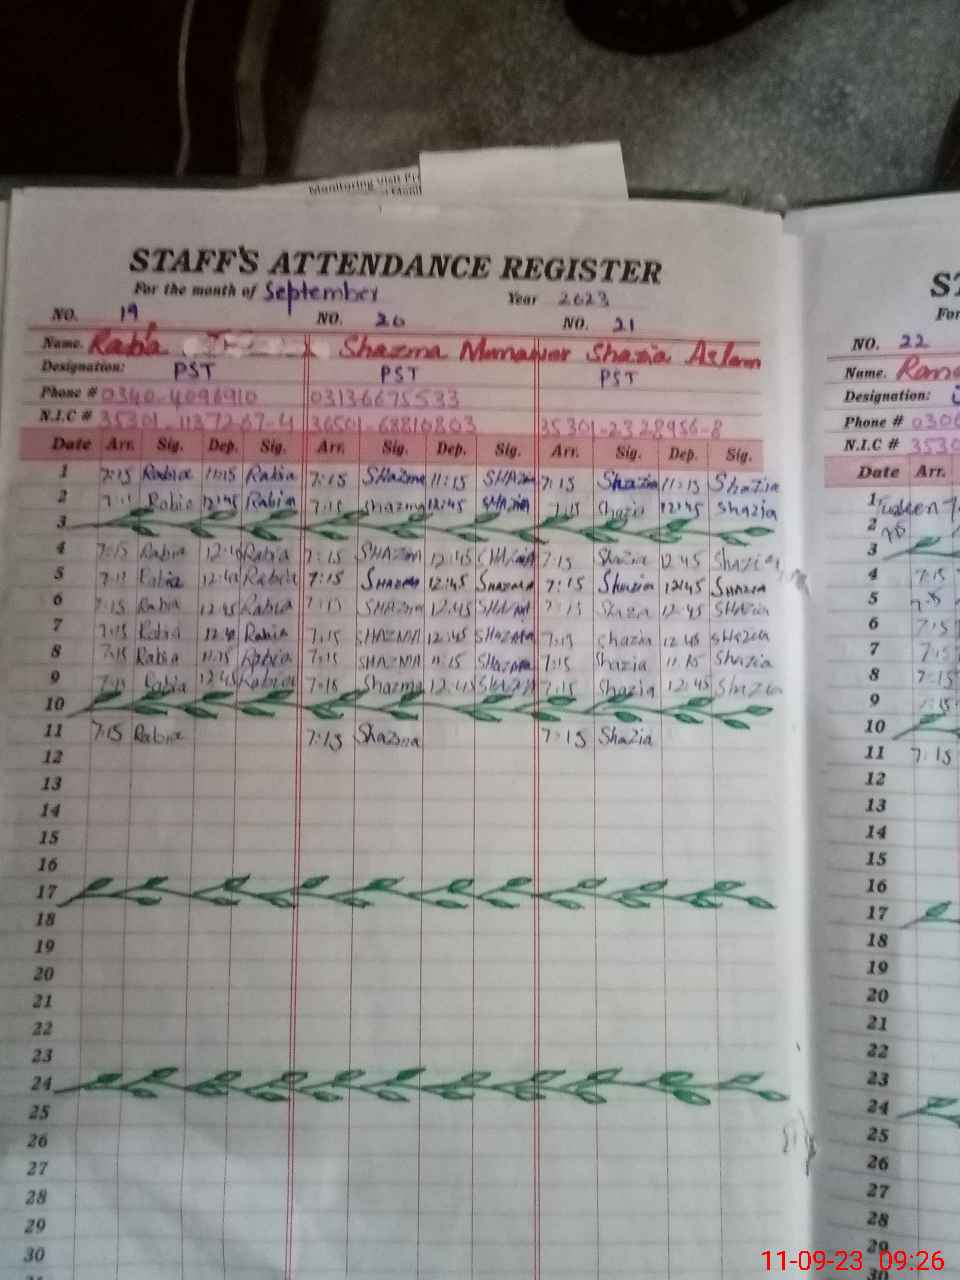 Monitoring visit Pr
STAFF'S ATTENDANCE REGISTER
For the month of September Year 2023
NO. 19 NO. 20 NO. 21
Name. Rabia Shazma Munawar Shazia Aslam
Designation: PST PST PST
Phone # 0340-4096910 03136675533
N.I.C # 35301-1137267-4 36501-68810803 35301-2328956-8
Date Arr. Sig. Dep. Sig. Arr. Sig. Dep. Sig. Arr. Sig. Dep. Sig.
1 7:15 Rabia 11:15 Rabia 7:15 SHAzma 11:15 SHAzma 7:15 Shazia 11:15 Shazia
2 7:15 Rabia 12:45 Rabia 7:15 Shazma 12:45 SHAzma 7:15 Shazia 12:45 Shazia
3
4 7:15 Rabia 12:45 Rabia 7:15 SHAZma 12:45 SHAzma 7:15 Shazia 12 45 Shazia
5 7:15 Rabia 12:45 Rabia 7:15 SHAZMA 12:45 SHAZMA 7:15 Shazia 12:45 SHAZIA
6 7:15 Rabia 12:45 Rabia 7:15 SHAZma 12:45 SHAZMA 7:15 Shazia 12:45 SHAZia
7 7:15 Rabia 12:45 Rabia 7:15 SHAZMA 12:45 SHAZMA 7:15 Shazia 12:45 SHAZia
8 7:15 Rabia 11:15 Rabia 7:15 SHAZMA 11:15 SHAZMA 7:15 Shazia 11:15 Shazia
9 7:15 Rabia 12:45 Rabia 7:15 Shazma 12:45 SHAZMA 7:15 Shazia 12:45 Shazia
10
11 7:15 Rabia 7:15 Shazma 7:15 Shazia
12
13
14
15
16
17
18
19
20
21
22
23
24
25
26
27
28
29
30
ST
For
NO. 22
Name. Rana
Designation:
Phone # 030
N.I.C # 3530
Date Arr.
1
2
3
4 7:15
5
6 7:15
7 7:15
8 7:15
9 7:15
10
11 7:15
12
13
14
15
16
17
18
19
20
21
22
23
24
25
26
27
28
29
30
11-09-23 09:26